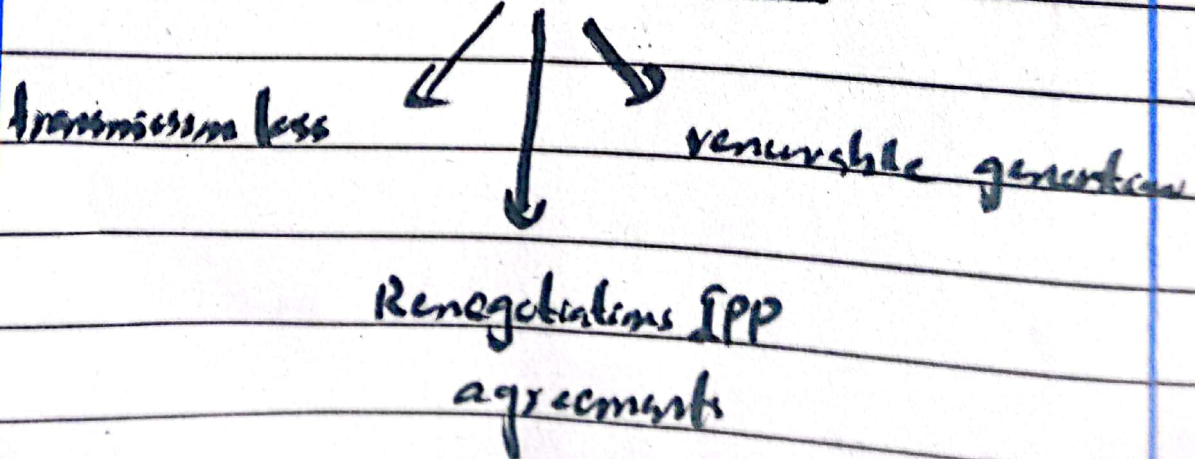 transmission loss
renewable generation
Renegotiations IPP
agreements